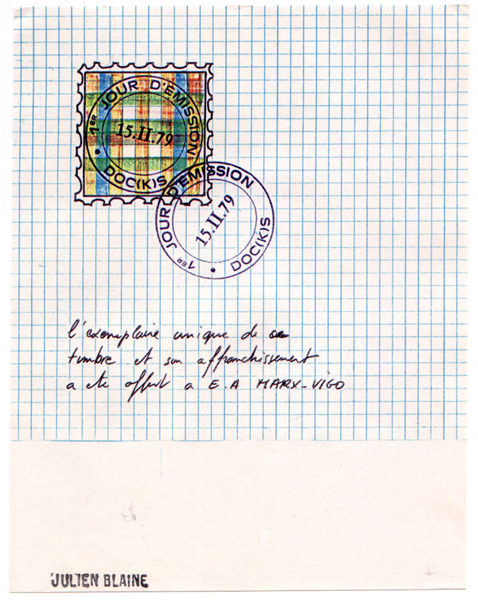 1ER JOUR D'ÉMISSION
15.II.79
DOC(K)S
1ER JOUR D'ÉMISSION
15.II.79
DOC(K)S
l'exemplaire unique de ce
timbre et son affranchissement
a ete offert a E.A MARX-VIGO
JULIEN BLAINE